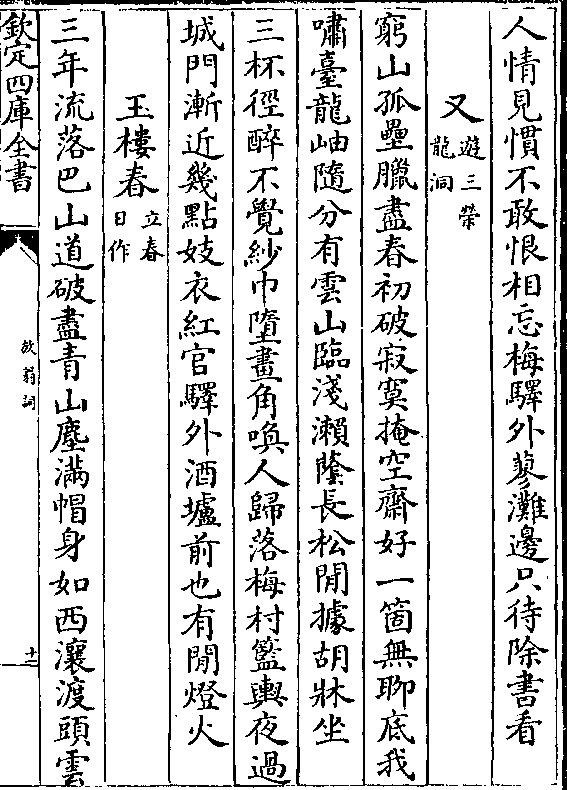 人情見慣不敢恨相忘梅驛外蓼灘邊只待除書看
又遊三榮龍洞
窮山孤壘臘盡春初破寂寞掩空齋好一箇無聊底我
嘯臺龍岫隨分有雲山臨淺瀨蔭長松閒據胡牀坐
三杯徑醉不覺紗巾墮畫角喚人歸落梅村籃輿夜過
城門漸近幾點妓衣紅官驛外酒壚前也有閒燈火
玉樓春立春日作
三年流落巴山道破盡青山塵滿帽身如西瀼渡頭雲
欽定四庫全書
放翁詞
十二